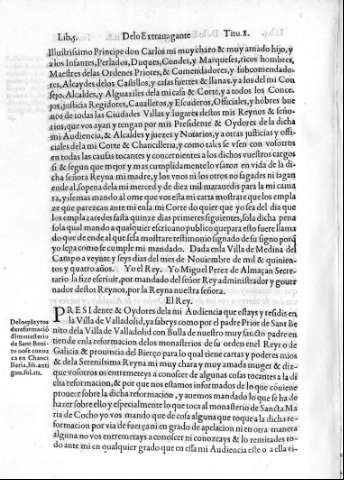 Lib.5. Delo Extrauagante Titu.8.
Illustrissimo Principe don Carlos mi muy charo & muy amado hijo, y
a los Infantes, Perlados, Duques, Condes, y Marqueses, ricos hombres,
Maestres delas Ordenes Priores, & Comendadores, y subcomendado-
res, Alcaydes delos Castillos, y casas fuertes & llanas, y a los del mi Con
sejo, Alcaldes, y Alguaziles dela mi casa & Corte, y a todos los Conce-
jos, justicia Regidores, Caualleros, y Escuderos, Officiales, y hõbres bue
nos de todas las Ciudades Villas y lugares destos mis Reynos & señorios,
que vos ayan y tengan por mis Presidente & Oydores de la dicha
mi Audiencia, & Alcaldes y juezes y Notarios, y a otras justicias y offi-
ciales dela mi Corte & Chancilleria, y como tales se vsen con vosotros
en todas las causas tocantes y concernientes a los dichos vuestros cargos
si & segun que mejor y mas cumplidamente lo vsaron en vida de la di-
cha señora Reyna mi madre, y los vnos ni los otros no fagades ni fagan
ende al, so pena dela mi merced y de diez mil marauedis para la mi cama
ra, y demas mando al ome que vos esta mi carta mostrare que los empla
ze que parezcan ante mi enla mi Corte do quier que yo sea del dia que
los emplazare desta quinze dias primeros siguientes, sola dicha pena
sola qual mando a qualquier escriuano publico que para esto fuere llama
do que de ende al que sela mostrare testimonio signado de su signo porq̃
yo sepa como se cumple mi mandado. Dada enla Villa de Medina del
Campo a veynte y seys dias del mes de Nouiembre de mil & quinien-
tos y quatro años. Yo el Rey. Yo Miguel Perez de Almaçan Secre-
tario la fize escriuir, por mandado del señor Rey administrador y gouer
nador destos Reynos, por la Reyna nuestra señora.
El Rey.
PRESIdente & Oydores dela mi Audiencia que estays y residis en
la Villa de Valladolid, ya sabeys como por el padre Prior de Sant Be
nito dela Villa de Valladolid con Bulla de nuestro muy sancto padre en
tiende enla reformacion delos monasterios de su orden enel Reyno de
Galizia & prouincia del Bierço para lo qual tiene cartas y poderes mios
& dela Serenissima Reyna mi muy chara y muy amada muger & diz-
que vosotros os entremeteys a conoscer de algunas cosas tocantes a la di
cha reformacion, & pot que nos estamos informados de lo que cõuiene
prouer sobre la dicha reformacion, y auemos mandado lo que se ha de
hazer sobre ello y especialmente lo que toca al monasterio de Sancta Ma
ria de Cocho yo vos mando que de cosa alguna que toque a la dicha re-
formacion por via de fuerça ni en grado de apelacion ni en otra manera
alguna no vos entremetays a conoscer ni conozcays & lo remitades to-
do ante mi en qualquier grado que en essa mi Audiencia este o a essa vi-
Delos pleytos
de reformació
del monasterio
de Sant Beni-
to no se conoz
ca en Chanci
lleria,